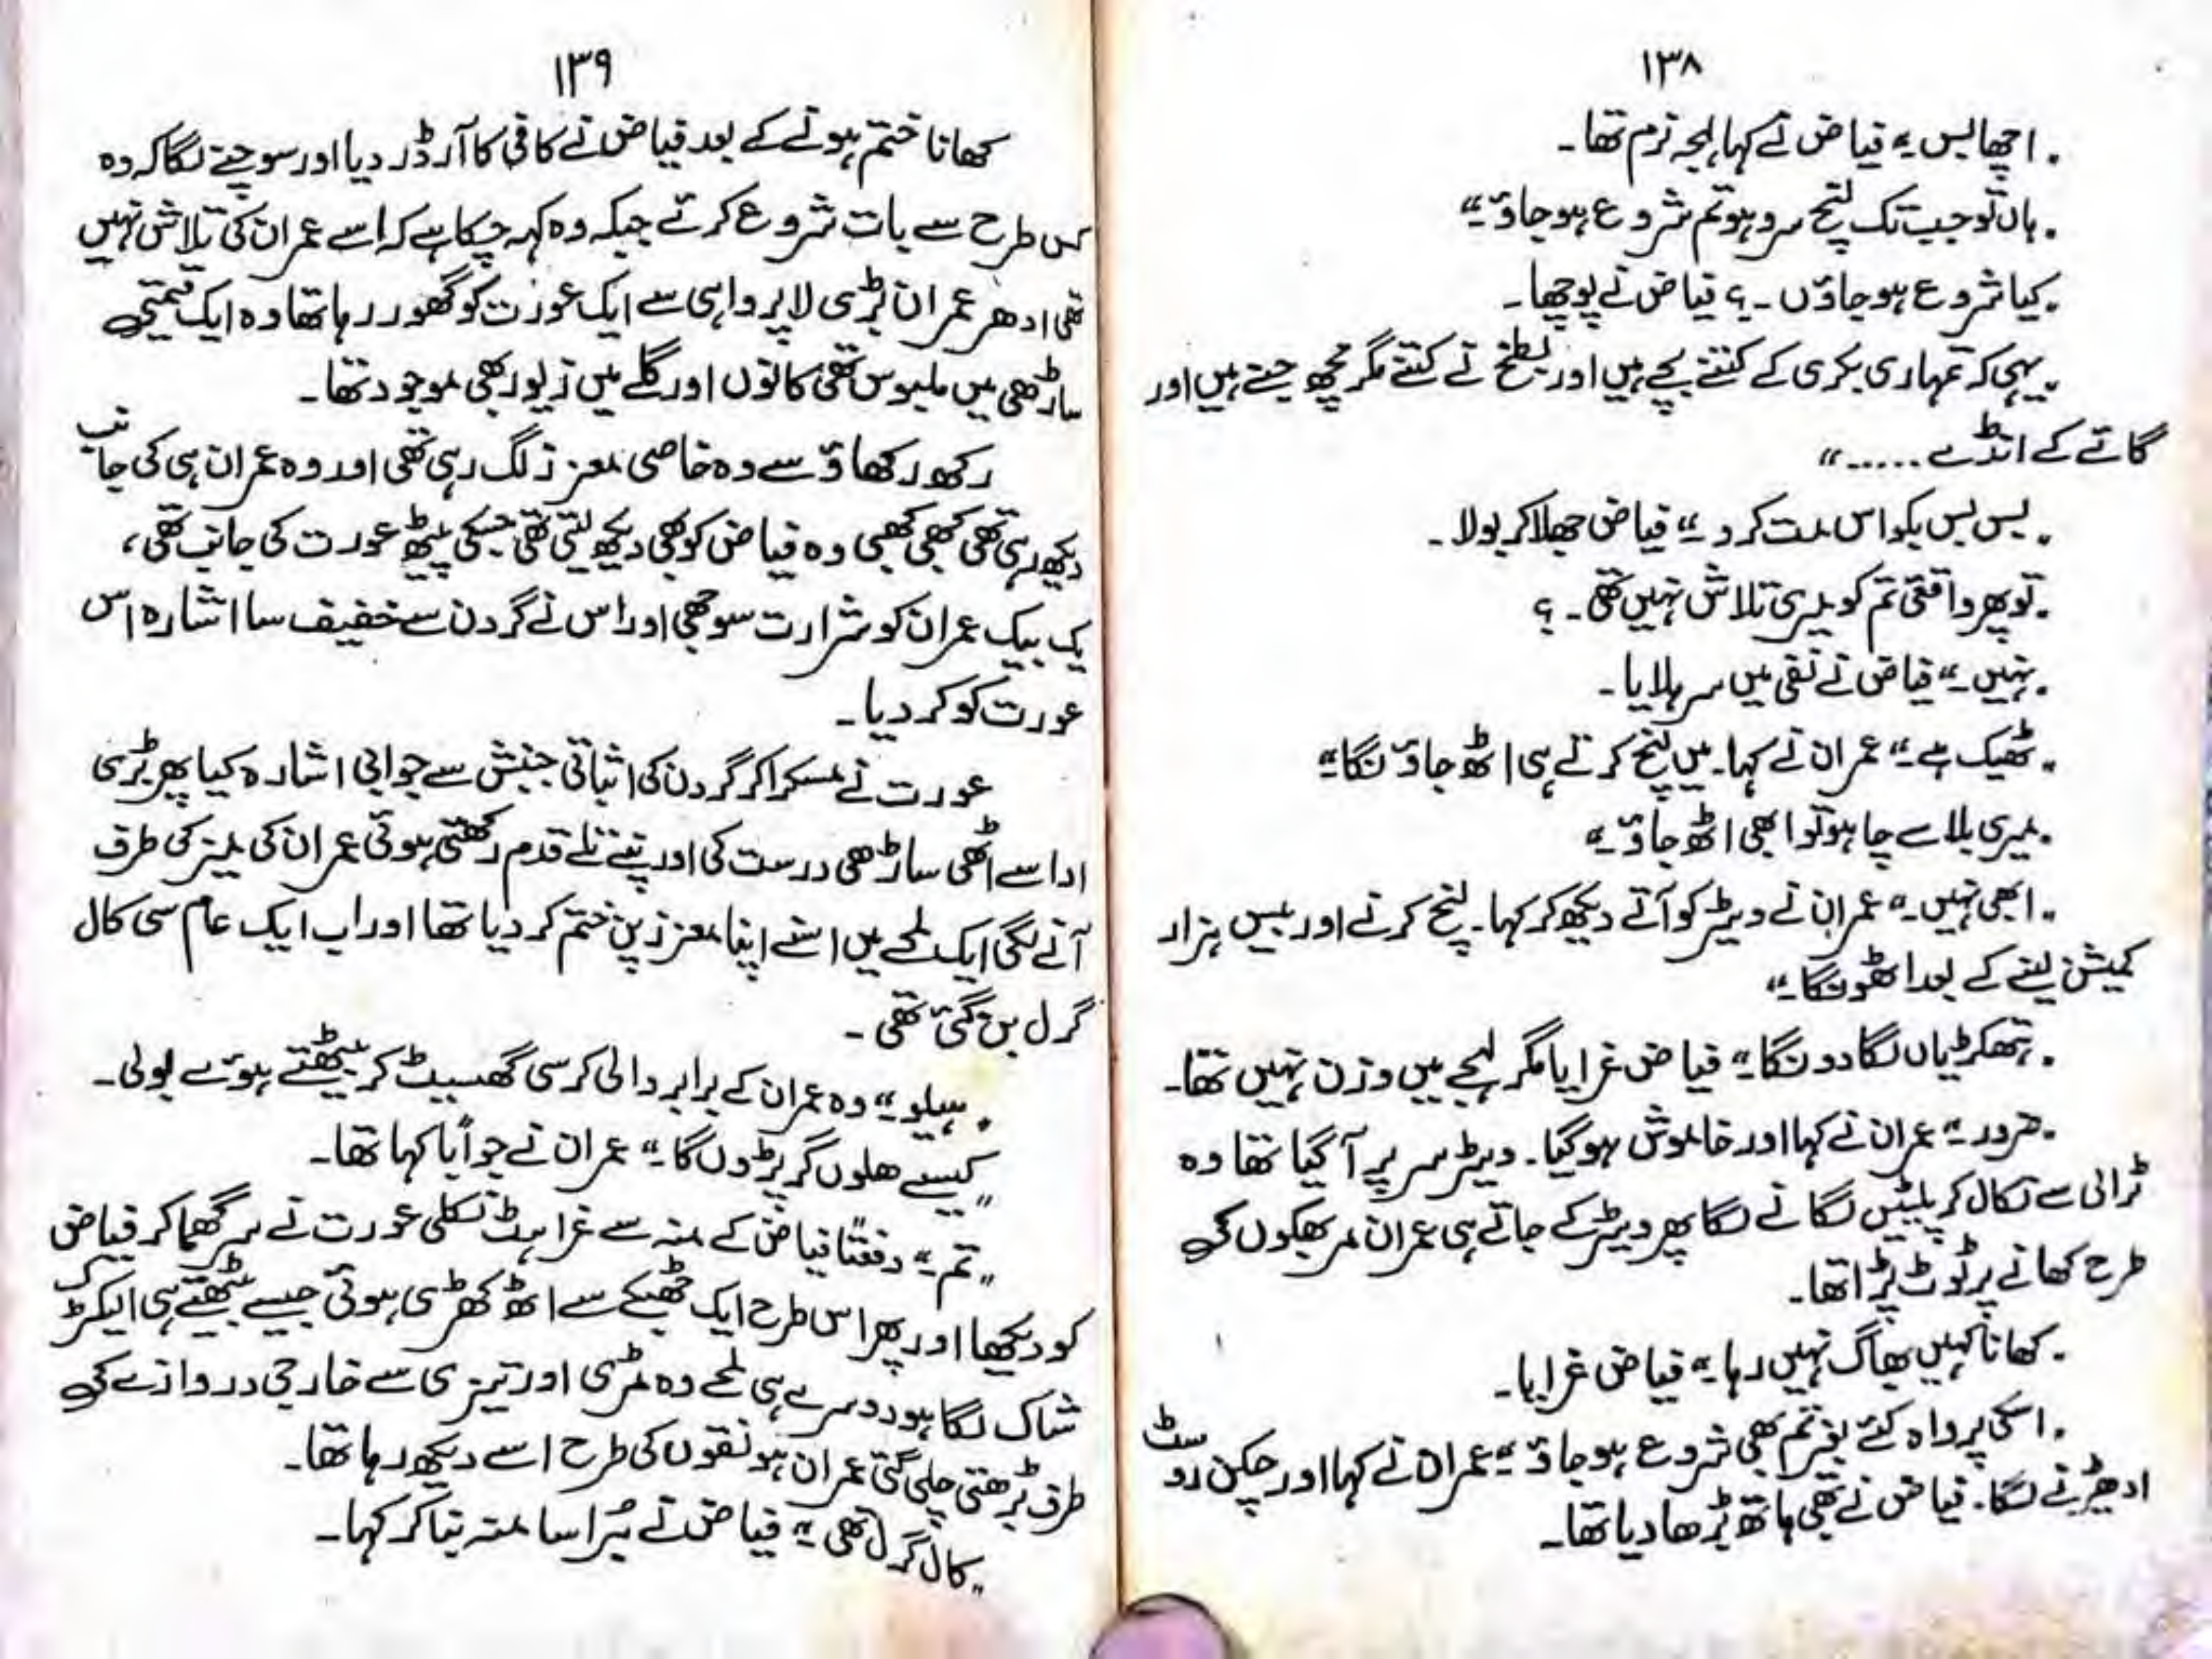 ۱۳۸
"اچھا بس۔" فیاض نے کہا لہجہ نرم تھا۔
"ہاں تو جب تک لنچ سرو ہو تم شروع ہو جاؤ۔"
"کیا شروع ہو جاؤں۔؟ فیاض نے پوچھا۔
"یہی کہ تمہاری بکری کے کتنے بچے ہیں اور بطخ نے کتنے مگرمچھ جنے ہیں اور
گائے کے انڈے ....."
"بس بس بکواس مت کرو۔" فیاض جھلا کر بولا۔
"تو پھر واقعی تم کو میری تلاش نہیں تھی۔؟
"نہیں۔" فیاض نے نفی میں سر ہلایا۔
"ٹھیک ہے۔" عمران نے کہا۔ میں لنچ کرتے ہی اٹھ جاؤنگا۔"
"میری بلا سے چاہو تو ابھی اٹھ جاؤ۔"
"ابھی نہیں۔" عمران نے ویٹر کو آتے دیکھ کر کہا۔ لنچ کرنے اور بیس ہزار
کمیشن لینے کے بعد اٹھونگا۔"
"ہتھکڑیاں لگا دونگا۔" فیاض غرایا مگر لہجے میں وزن نہیں تھا۔
"ضرور۔" عمران نے کہا اور خاموش ہو گیا۔ ویٹر سر پر آ گیا تھا وہ
ٹرالی سے نکال کر پلیٹیں لگانے لگا پھر ویٹر کے جاتے ہی عمران مر بھکوں کی
طرح کھانے پر ٹوٹ پڑا تھا۔
"کھانا کہیں بھاگ نہیں رہا۔" فیاض غرایا۔
"اسکی پرواہ کئے بغیر تم بھی شروع ہو جاؤ۔" عمران نے کہا اور چکن روسٹ
ادھیڑنے لگا۔ فیاض نے بھی ہاتھ بڑھا دیا تھا۔
۱۳۹
کھانا ختم ہونے کے بعد فیاض نے کافی کا آرڈر دیا اور سوچنے لگا کہ وہ
کس طرح سے بات شروع کرے جبکہ وہ کہہ چکا ہے کہ اسے عمران کی تلاش نہیں
تھی ادھر عمران بڑی لاپرواہی سے ایک عورت کو گھور رہا تھا وہ ایک قیمتی
ساڑھی میں ملبوس تھی کانوں اور گلے میں زیور بھی موجود تھا۔
رکھ رکھاؤ سے وہ خاصی معزز لگ رہی تھی اور وہ عمران ہی کی جانب
دیکھ رہی تھی کبھی کبھی وہ فیاض کو بھی دیکھ لیتی تھی جسکی پیٹھ عورت کی جانب تھی،
یک بیک عمران کو شرارت سوجھی اور اس نے گردن سے خفیف سا اشارہ اس
عورت کو کر دیا۔
عورت نے مسکرا کر گردن کی اثباتی جنبش سے جوابی اشارہ کیا پھر بڑی
ادا سے اٹھی ساڑھی درست کی اور نپے تلے قدم رکھتی ہوئی عمران کی میز کی طرف
آنے لگی ایک لمحے میں اسنے اپنا معزز پن ختم کر دیا تھا اور اب ایک عام سی کال
گرل بن گئی تھی۔
"ہیلو۔" وہ عمران کے برابر والی کرسی گھسیٹ کر بیٹھتے ہوئے بولی۔
"کیسے ھلوں گر پڑوں گا۔" عمران نے جواباً کہا تھا۔
"تم۔" دفعتاً فیاض کے منہ سے غراہٹ نکلی عورت نے سر گھما کر فیاض
کو دیکھا اور پھر اس طرح ایک جھٹکے سے اٹھ کھڑی ہوئی جیسے بیٹھتے ہی الیکٹرک
شاک لگا ہو دوسرے ہی لمحے وہ مڑی اور تیزی سے خارجی دروازے کی
طرف بڑھتی چلی گئی عمران ہونقوں کی طرح اسے دیکھ رہا تھا۔
"کال گرل تھی۔" فیاض نے بُرا سا منہ بنا کر کہا۔